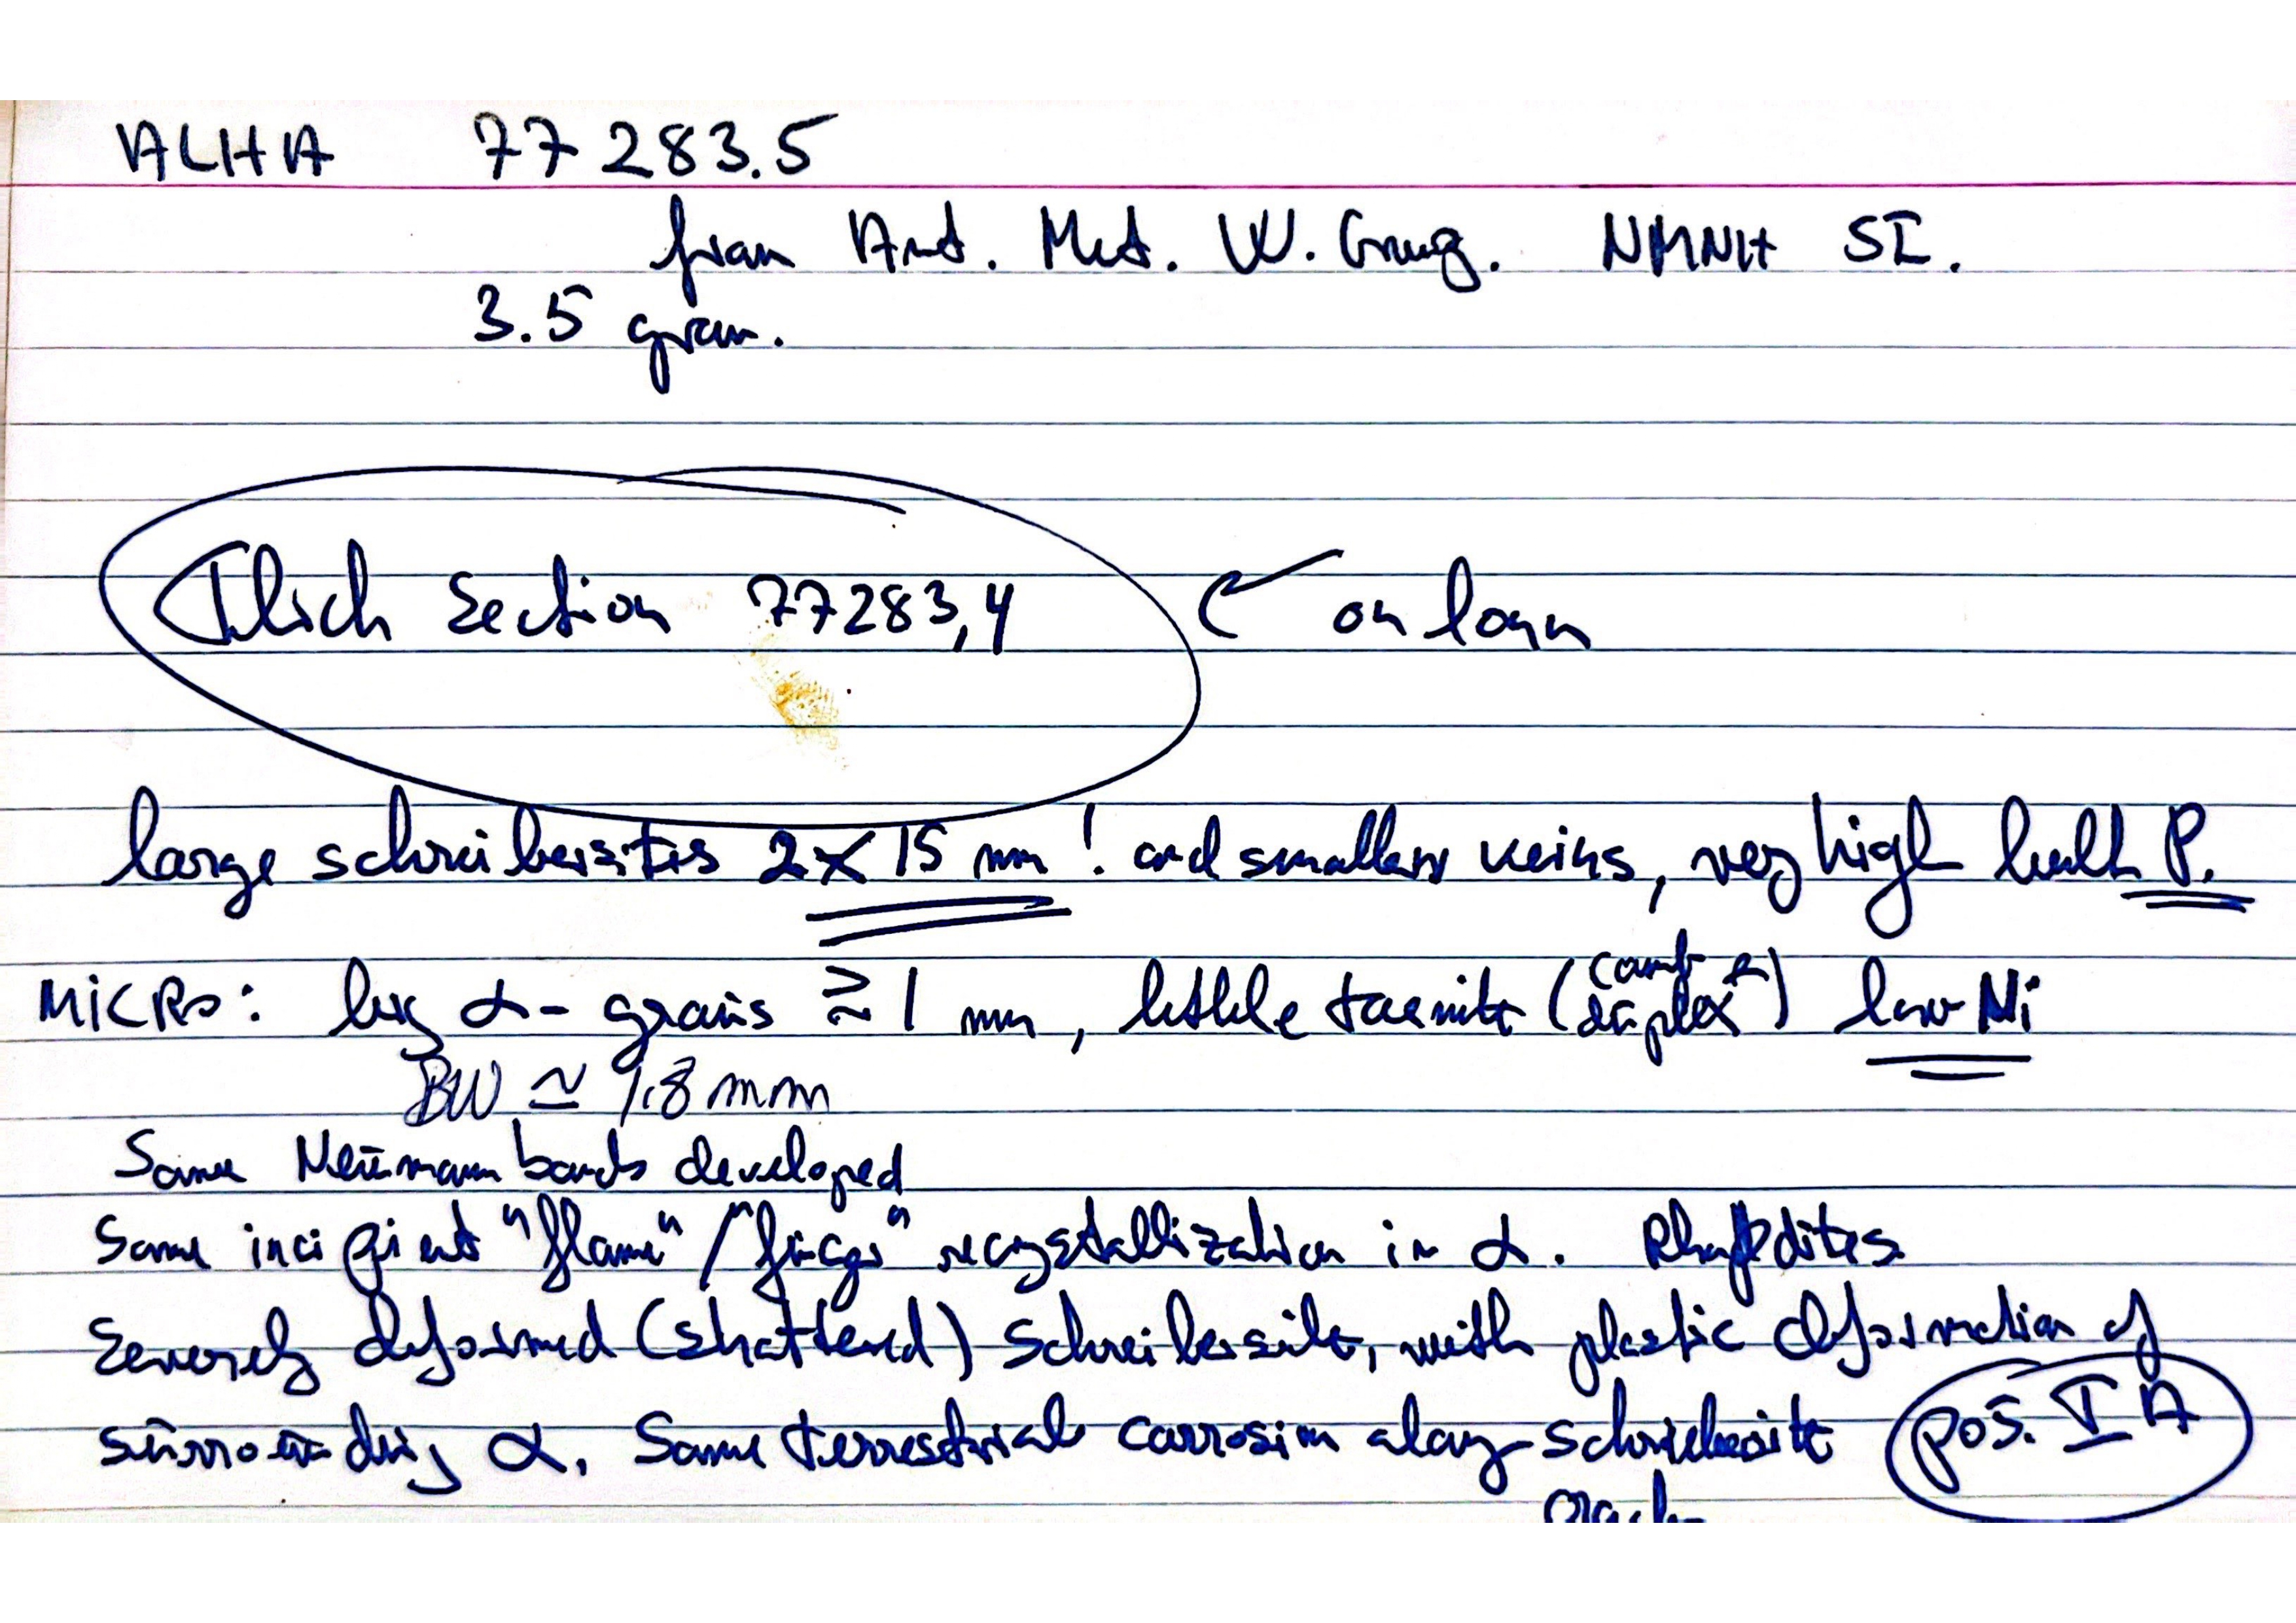 ALHA 77283.5
from Ant. Met. W. Group. NMNH SI.
3.5 gram.
Thick Section 77283,4 on loan
large schreibersites 2 x 15 mm! and smaller veins, very high bulk P.
MICRO: big α- grains ≳ 1 mm, little taenite (comb + duplex) low Ni
BW ≃ 1.8 mm
Some Neumann bands developed
Some incipient "flame" / "finger" recrystallization in α. Rhabdites
Severely deformed (shattered) schreibersite, with plastic deformation of
surrounding α. Some terrestrial corrosion along schreibersite
pos. I A